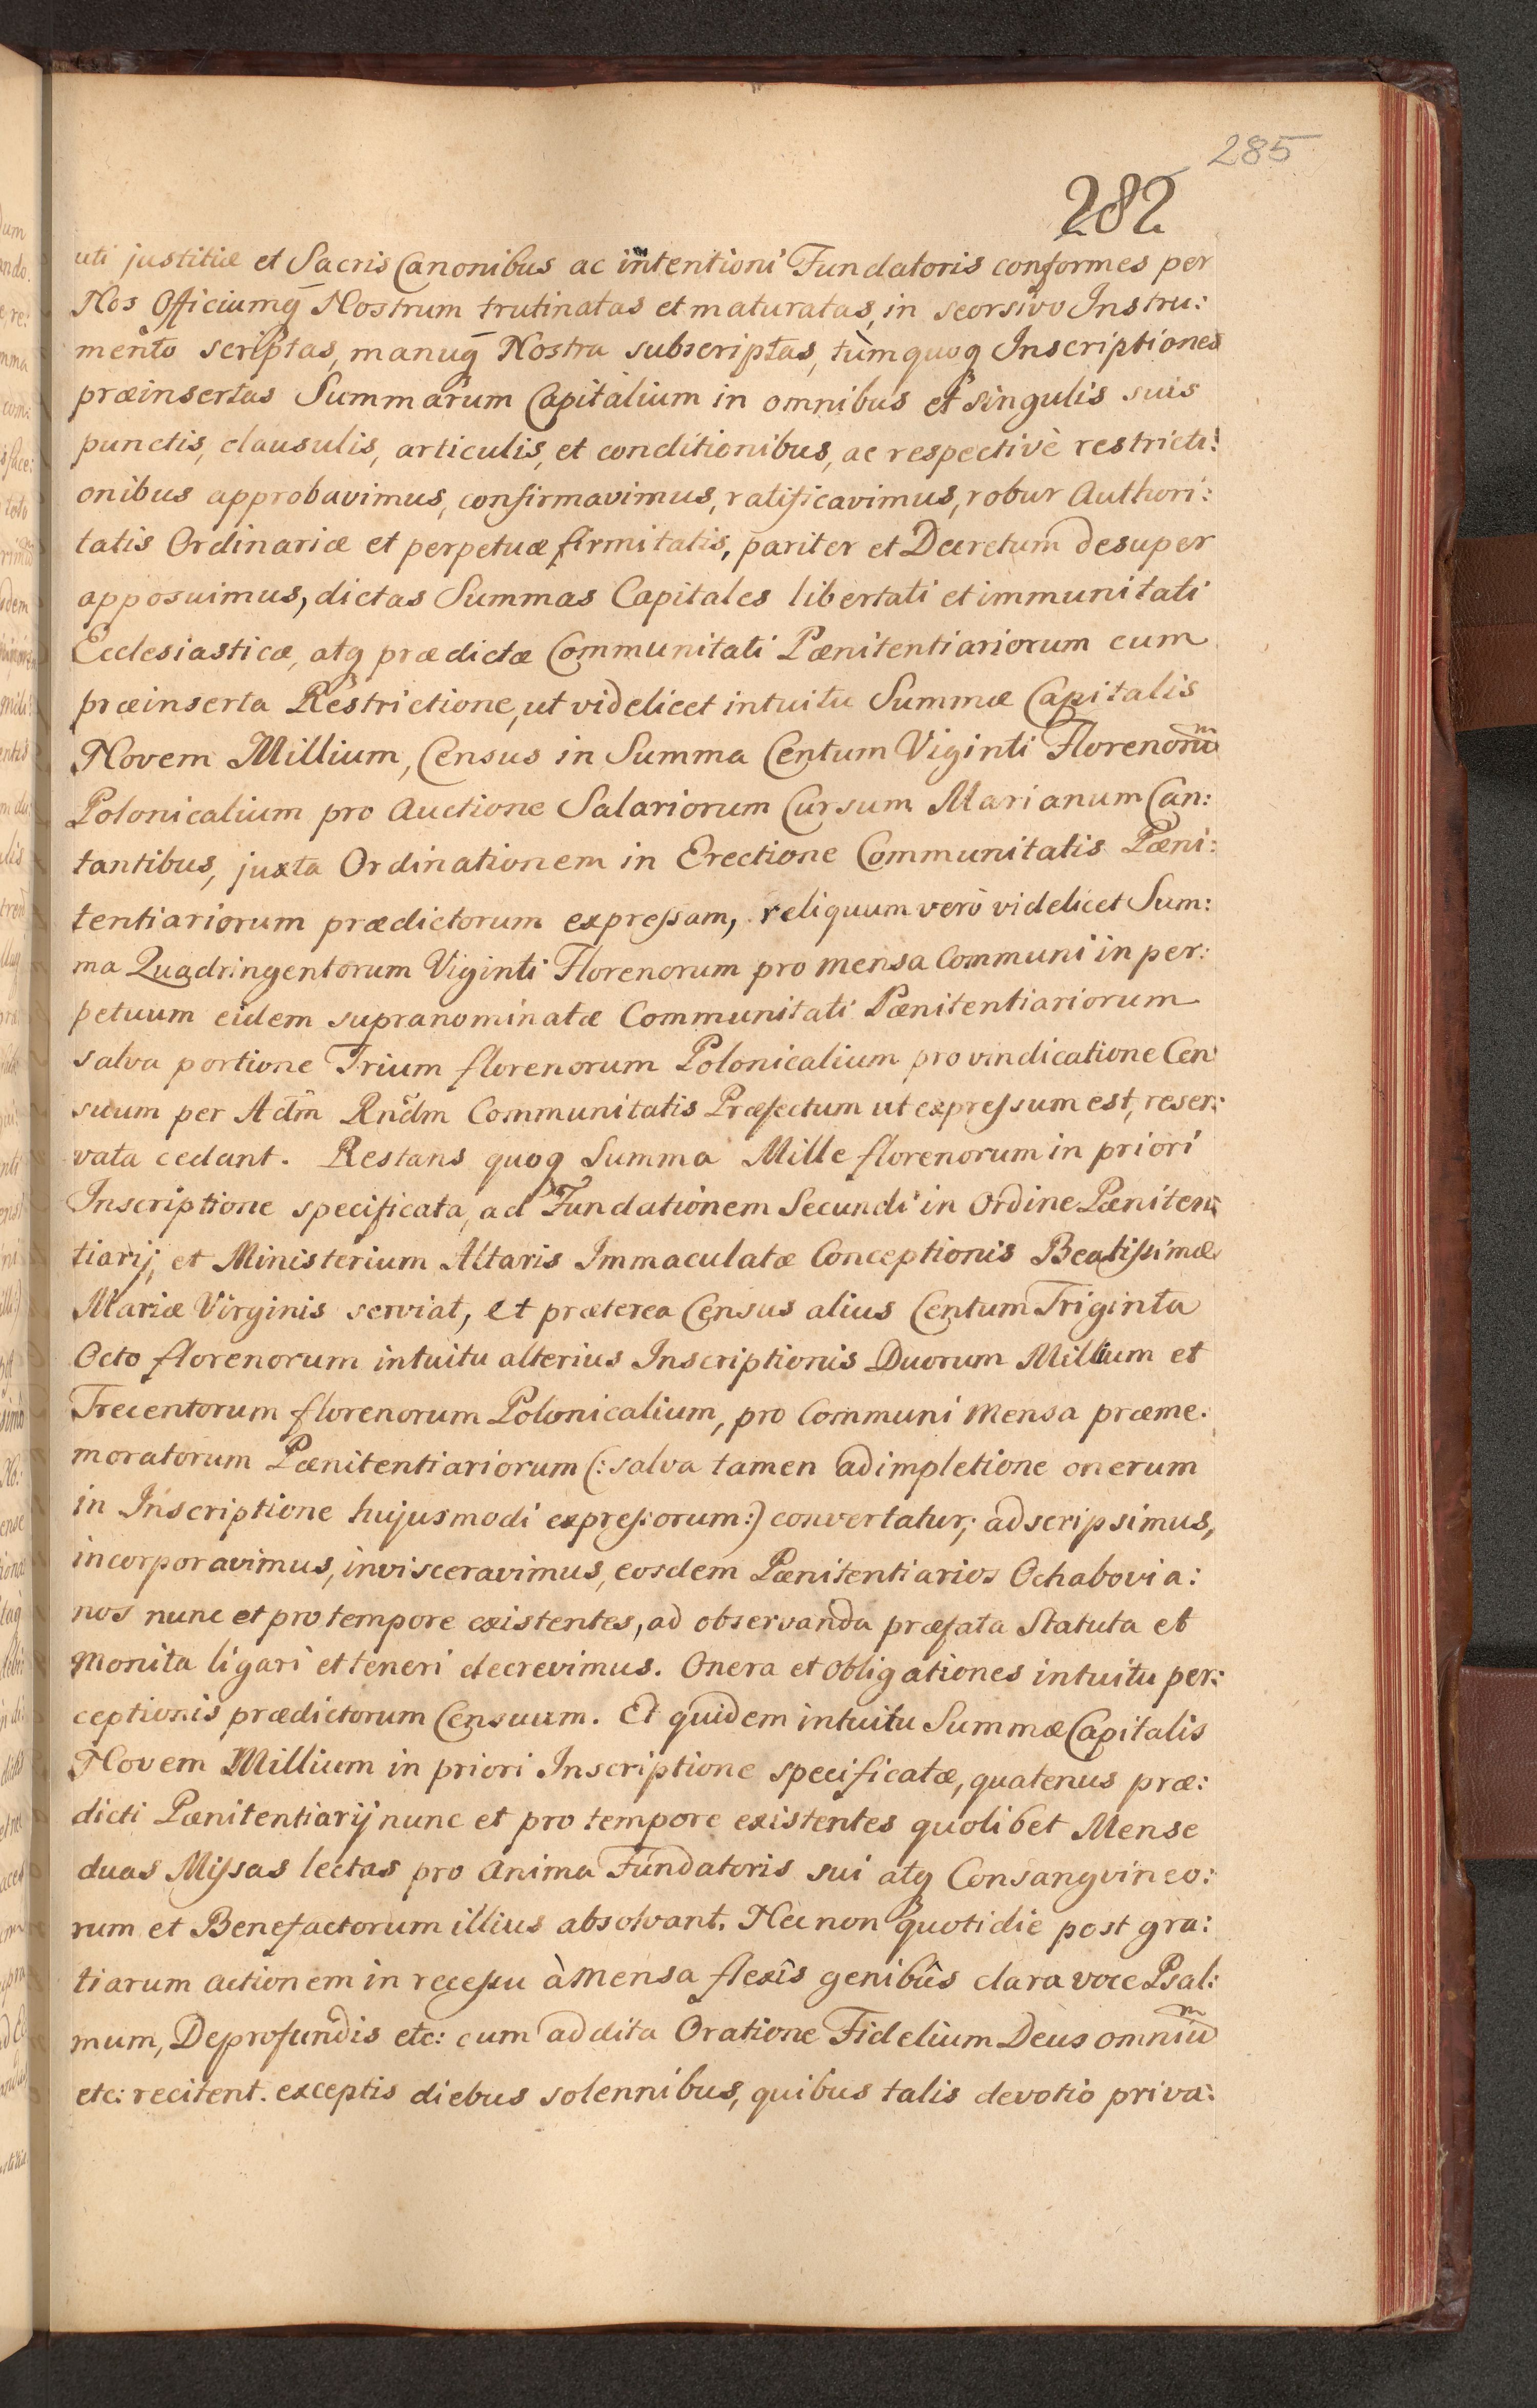 285
282
uti justitiæ et Sacris Canonibus ac intentioni Fundatoris conformes per
Nos Officiumq̃ Nostrum trutinatas et maturatas, in seorsivo Instru:
mento scriptas, manuq̃ Nostra subscriptas, tùmquoq Inscriptiones
præinsertas Summarum Capitalium in omnibus et singulis suis
punctis, clausulis, articulis, et conditionibus, ac respectivè restricti:
onibus approbavimus, confirmavimus, ratificavimus, robur Authori:
tatis Ordinariæ et perpetuæ firmitatis, pariter et Decretum desuper
apposuimus, dictas Summas Capitales libertati et immunitati
Ecclesiasticæ, atq prædictæ Communitati Pænitentiariorum cum
præinserta Restrictione, ut videlicet intuitu Summæ Capitalis
Novem Millium, Census in Summa Centum Viginti Florenoruᵐ
Polonicalium pro Auctione Salariorum Cursum Marianum Can:
tantibus, juxta Ordinationem in Erectione Communitatis Pæni:
tentiariorum prædictorum expressam, reliquum verò videlicet Sum:
ma Quadringentorum Viginti Florenorum pro mensa Communi in per:
petuum eidem supranominatæ Communitati Pænitentiariorum
salva portione Trium florenorum Polonicalium pro vindicatione Cen
suum per Adm̃ Rnd̃m Communitatis Præfectum ut expressum est, reser:
vata cedant. Restans quoq Summa Mille florenorum in priori
Inscriptione specificata, ad Fundationem Secundi in Ordine Pæniten:
tiarij, et Ministerium Altaris Immaculatæ Conceptionis Beatissimæ
Mariæ Virginis serviat, et præterea Census alius Centum Triginta
Octo florenorum intuitu alterius Inscriptionis Duorum Millium et
Trecentorum florenorum Polonicalium, pro Communi Mensa præme:
moratorum Pænitentiariorum (: salva tamen adimpletione onerum
in Inscriptione hujusmodi expressorum :) convertatur; adscripsimus,
incorporavimus, invisceravimus, eosdem Pænitentiarios Ochabovia:
nos nunc et pro tempore existentes, ad observanda præfata Statuta et
Monita ligari et teneri decrevimus. Onera et Obligationes intuitu per:
ceptionis prædictorum Censuum. Et quidem intuitu Summæ Capitalis
Novem Millium in priori Inscriptione specificatæ, quatenus præ:
dicti Pænitentiarij nunc et pro tempore existentes quolibet Mense
duas Missas lectas pro Anima Fundatoris sui atq Consangvineo:
rum et Benefactorum illius absolvant. Necnon quotidie post gra:
tiarum actionem in recessu à Mensa flexis genibus clara voce Psal:
mum, De profundis etc: cum addita Oratione Fidelium Deus omniuᵐ
etc: recitent. exceptis diebus solennibus, quibus talis devotio priva: